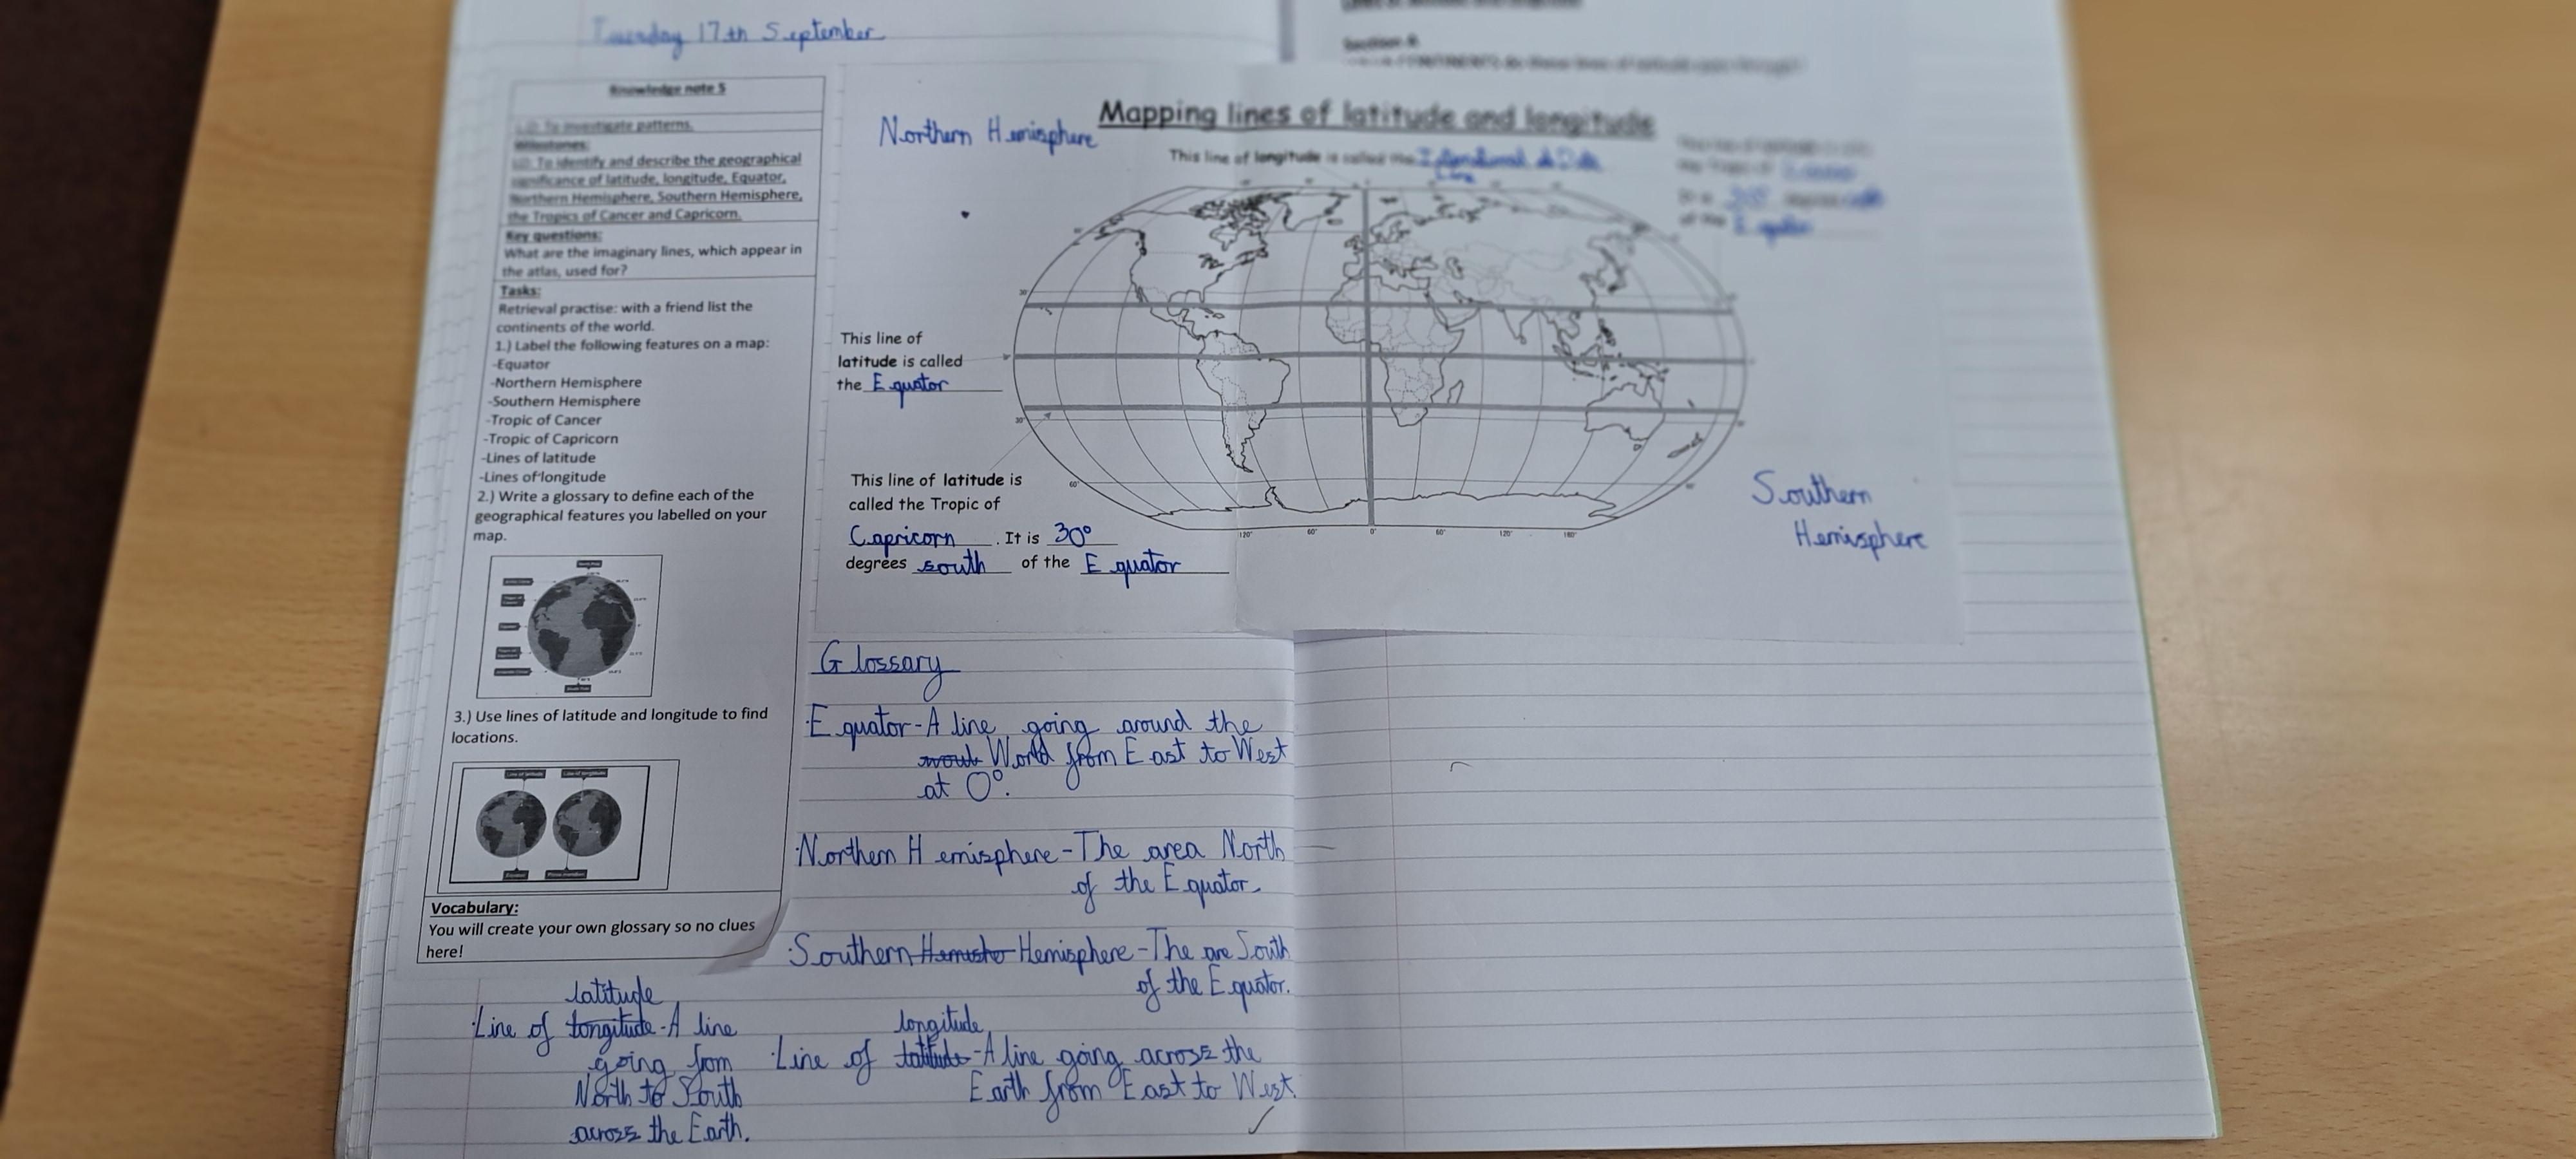 Tuesday 17th September
Knowledge note 5
LO: To investigate patterns.
Milestones:
LO: To identify and describe the geographical
significance of latitude, longitude, Equator,
Northern Hemisphere, Southern Hemisphere,
the Tropics of Cancer and Capricorn.
Key questions:
What are the imaginary lines, which appear in
the atlas, used for?
Tasks:
Retrieval practise: with a friend list the
continents of the world.
1.) Label the following features on a map:
-Equator
-Northern Hemisphere
-Southern Hemisphere
-Tropic of Cancer
-Tropic of Capricorn
-Lines of latitude
-Lines of longitude
2.) Write a glossary to define each of the
geographical features you labelled on your
map.
3.) Use lines of latitude and longitude to find
locations.
Vocabulary:
You will create your own glossary so no clues
here!
Section A
Mapping lines of latitude and longitude
Northern Hemisphere
This line of longitude is called the International Date
Line
of the Equator
This line of
latitude is called
the Equator
This line of latitude is
called the Tropic of
Capricorn. It is 30°
degrees south of the Equator
Southern
Hemisphere
60°
120°
60°
0°
60°
120°
180°
Glossary
·Equator-A line going around the
World from East to West
at 0°.
·Northern Hemisphere-The area North
of the Equator.
·Southern Hemisphere-The are South
of the Equator.
latitude
·Line of longitude-A line
going from
North to South
across the Earth.
longitude
·Line of latitude-A line going across the
Earth from East to West.